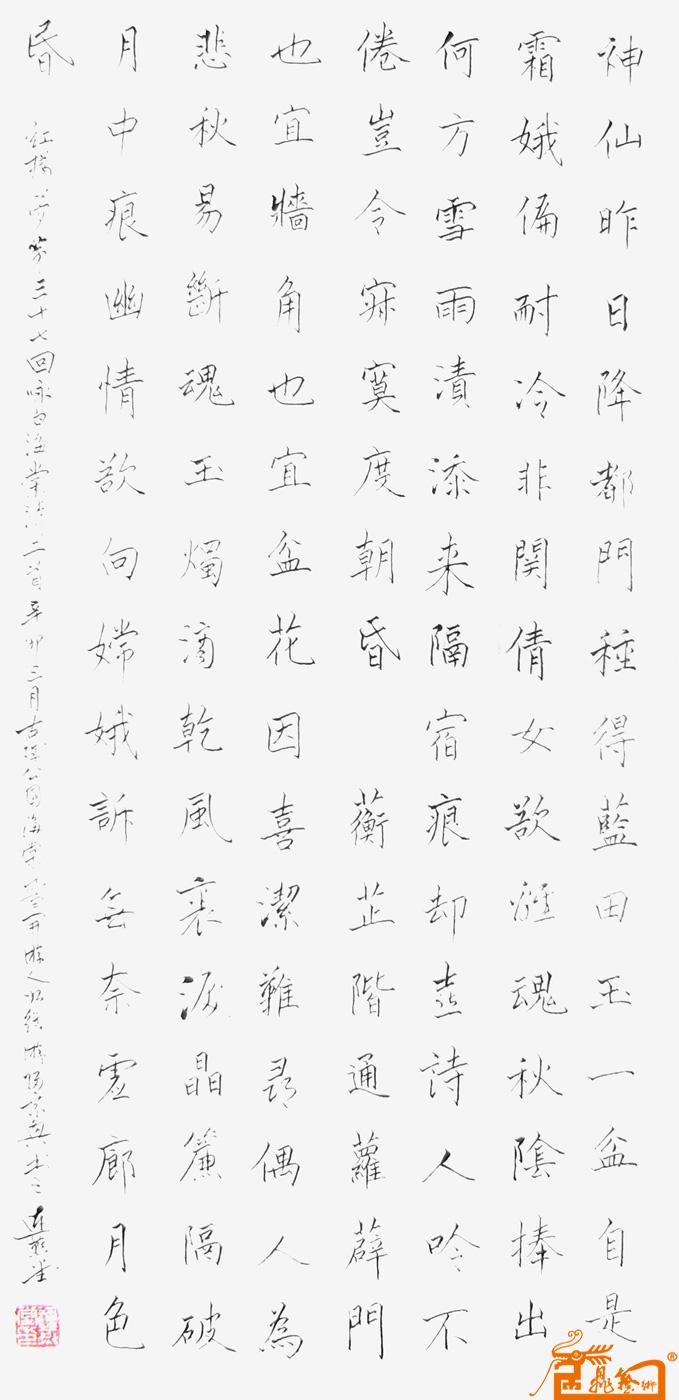 神仙昨日降都門種得藍田玉一盆自是
霜娥偏耐冷非関倩女欲離魂秋陰捧出
何方雪雨漬添来隔宿痕却喜詩人吟不
倦豈令寂寞度朝昏 蘅芷階通蘿薜門
也宜牆角也宜盆花因喜潔難尋偶人為
悲秋易斷魂玉燭滴乾風裏淚晶簾隔破
月中痕幽情欲向嫦娥訴無奈虛廊月色
昏
紅樓夢第三十七回咏白海棠詩二首辛卯三月古城公園海棠盛開游人